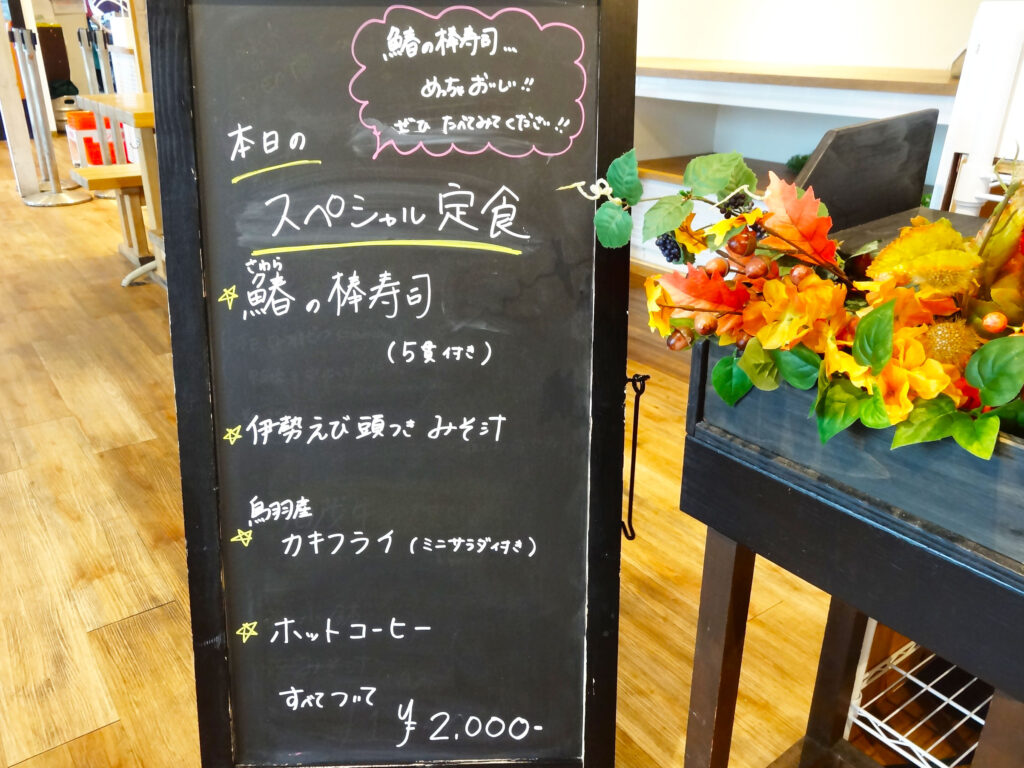 鰆の棒寿司...
めっちゃおいしい!!
ぜひ たべてみてください!!
本日の
スペシャル定食
さわら
☆鰆の棒寿司
(5貫付き)
☆伊勢えび頭つき みそ汁
鳥羽産
☆カキフライ(ミニサラダ付き)
☆ホットコーヒー
すべてついて
¥2,000-